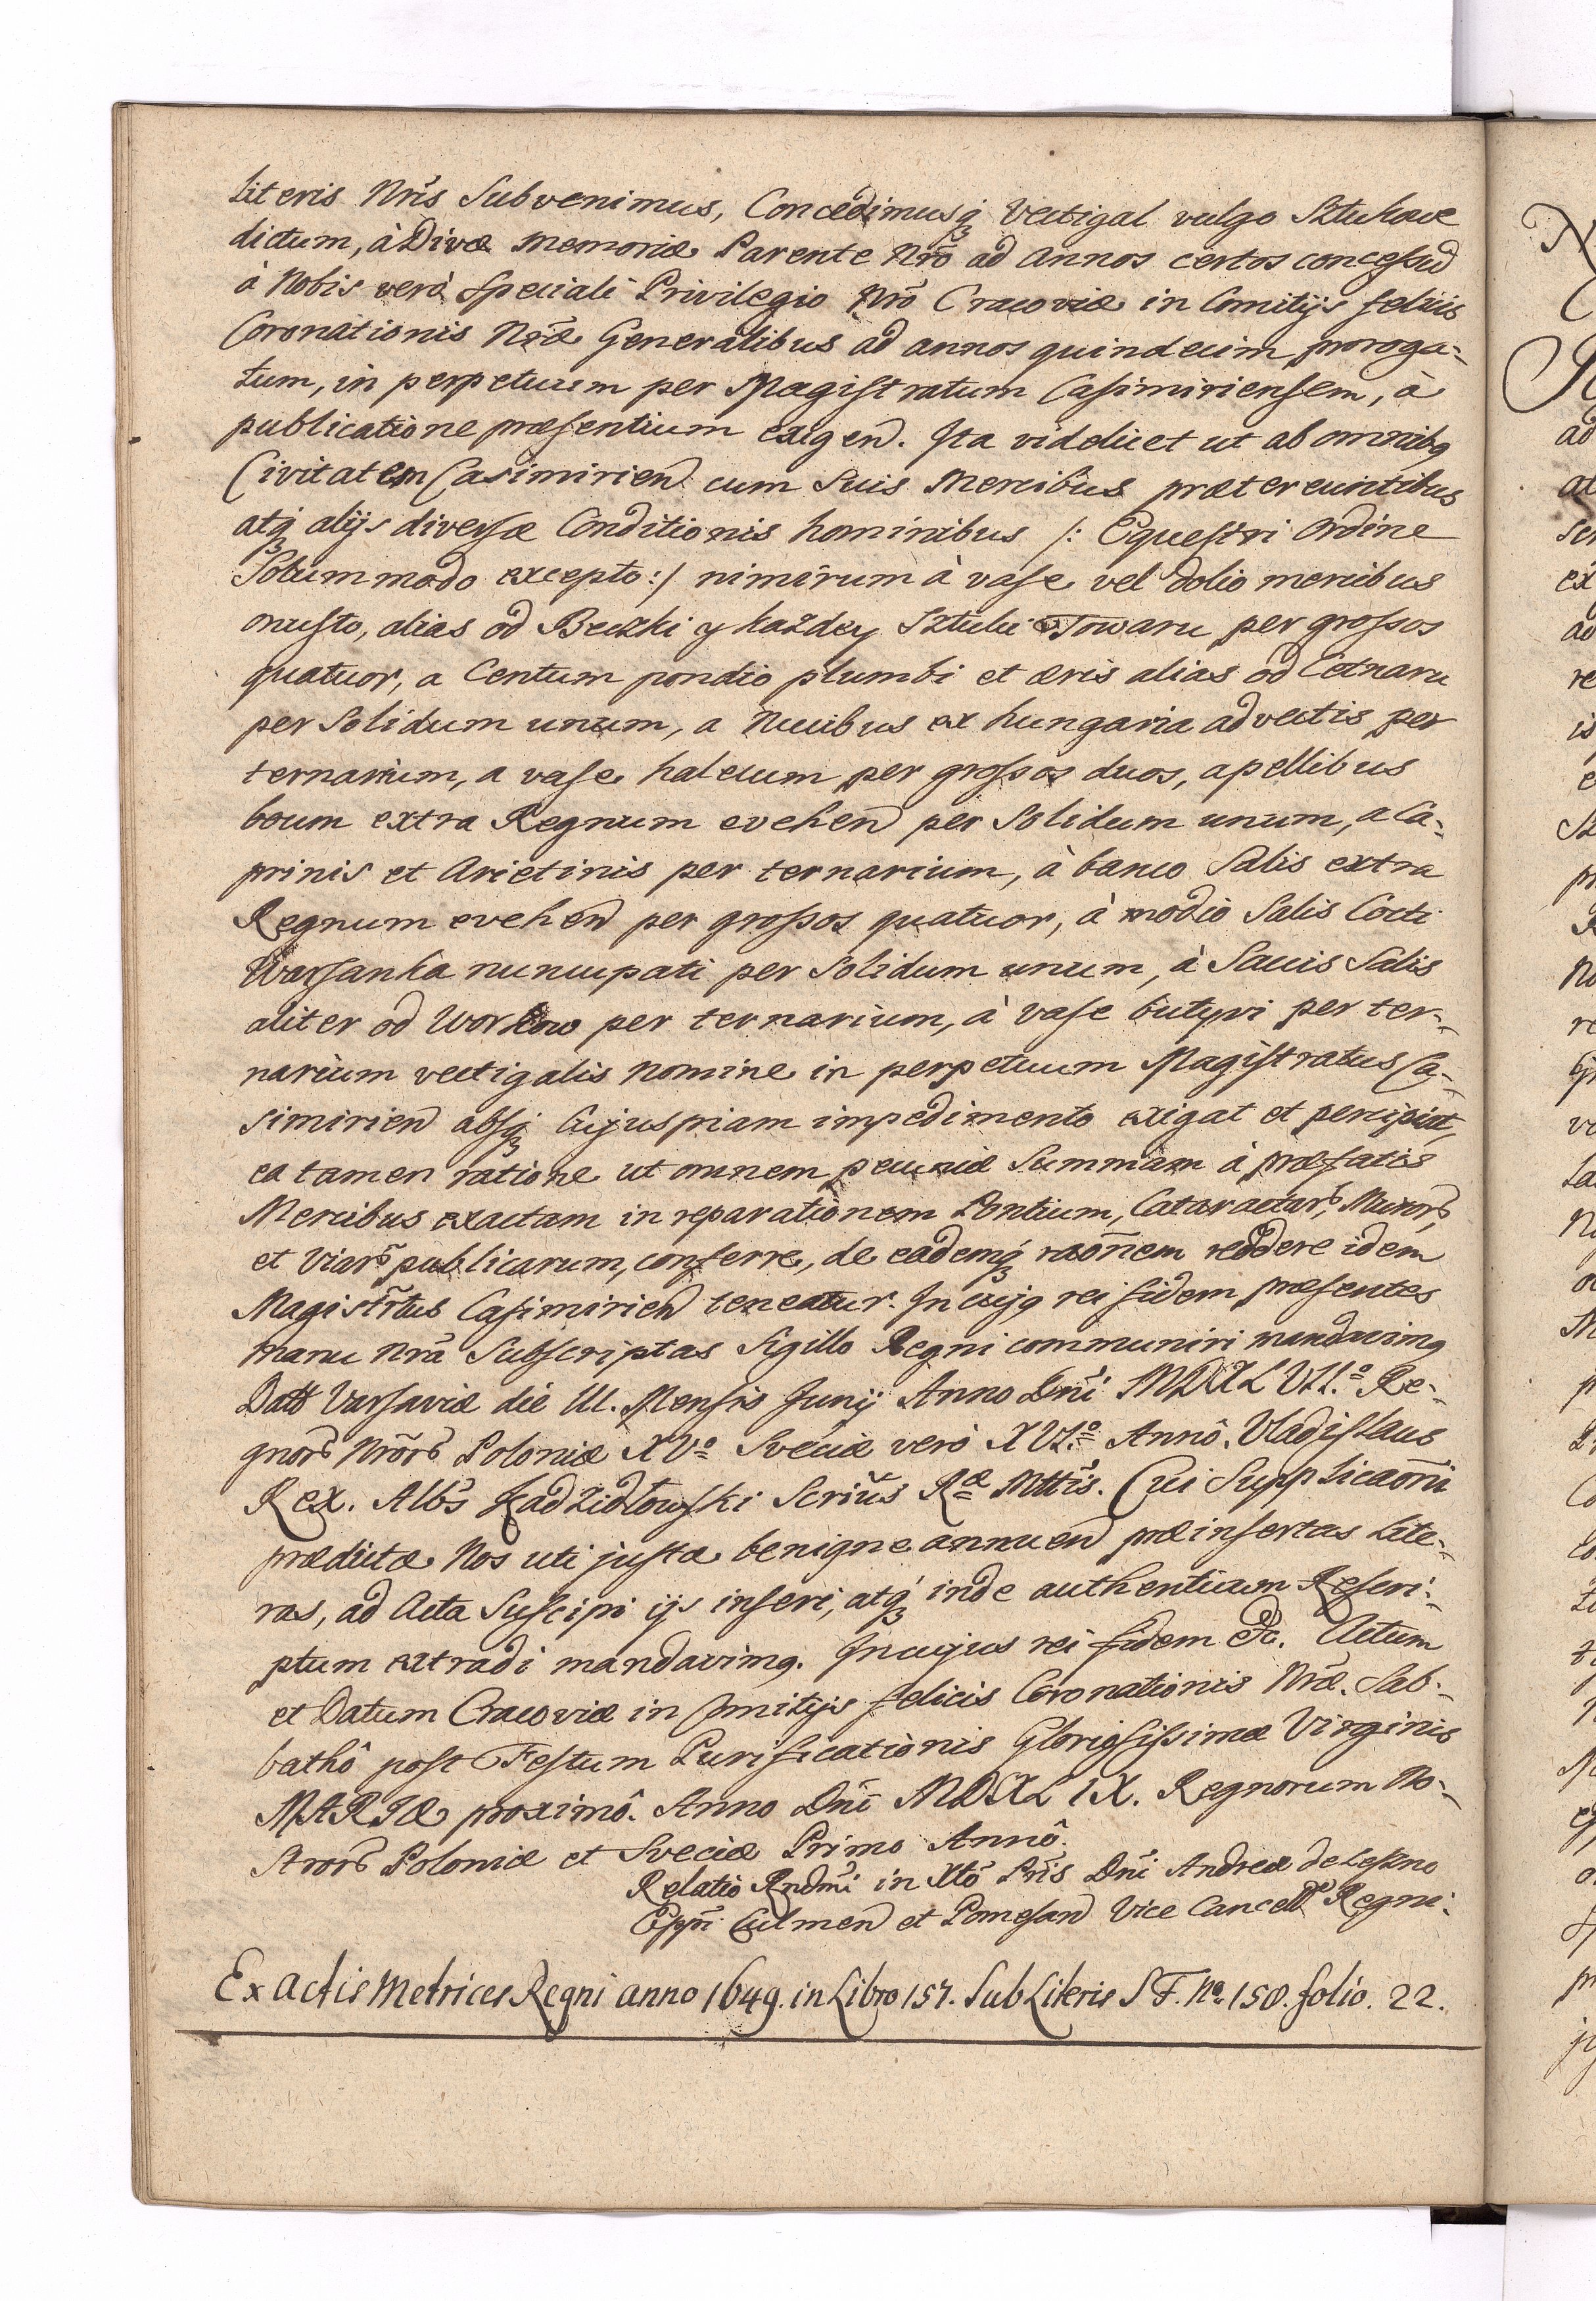 Literis Nr̃is Subvenimus, Concedimusq́ Vectigal vulgo Sztukowe
dictum, à Divæ Memoriæ Parente Nr̃o ad Annos certos concessũ
à Nobis verò Speciali Privilegio Nr̃o Cracoviæ in Comitijs felicis
Coronationis Nr̃æ Generalibus ad annos quindecim proroga-
tum, in perpetuum per Magistratum Casimiriensem, à
publicatione præsentium exigen̄. Ita videlicet ut ab omnibq
Civitatem Casimirien̄ cum Suis Mercibus prætereuntibus
atq́ alijs diversæ Conditionis hominibus /: Equestri Ordine
Solummodo excepto :/ nimirum à vase vel dolio mercibus
onusto, alias od Beczki y każdey Sztuki Towaru per grossos
quatuor, a Centum pondio plumbi et æris alias od Cetnaru
per Solidum unum, a Nucibus ex Hungaria advectis per
ternarium, a vase halecum per grossos duos, a pellibus
boum extra Regnum evehen̄ per Solidum unum, a Ca-
prinis et Arietinis per ternarium, à banco Salis extra
Regnum evehen̄ per grossos quatuor, à modio Salis Cocti
Warsanka nuncupati per Solidum unum, à Saccis Salis
aliter od Workow per ternarium, à vase butyri per ter-
narium vectigalis nomine in perpetuum Magistratus Ca-
simirien̄ absq́ Cujuspiam impedimento exigat et percipiat,
ea tamen ratione ut omnem pecuniæ Summam à præfatis
Mercibus exactam in reparationem Pontium, Cataractarꝝ, Murorꝝ,
et Viarꝝ publicarum, conferre, de eademq́ raōnem reddere idem
Magistr̃tus Casimirien̄ teneatur. In cujq rei fidem præsentes
manu Nr̃a Subscriptas Sigillo Regni communiri mandavimq
Datt Varsaviæ die III. Mensis Junij Anno Dñi MDCXLVII.º Re-
gnorꝝ Nr̃orꝝ Poloniæ XVº Sveciæ verò XVI.º Annô. Vladislaus
Rex. Alb̃s Kadzidłowski Secrius Ræ Mttis. Cui Supplicaōni
prædictæ Nos uti justæ benigne annuen̄ præinsertas Lite-
ras, ad Acta Suscipi ijs inseri, atq́ inde authenticum Rescri-
ptum extradi mandavimq. In cujus rei fidem &c. Actum
et Datum Cracoviæ in Comitijs felicis Coronationis Nr̃æ. Sab-
bathô post Festum Purificationis Gloriosissimæ Virginis
MARIÆ proximô. Anno Dñi MDCXLIX. Regnorum No-
strorꝝ Poloniæ et Sveciæ Primo Annô.
Relatio Rndm̃i in Xt̃o Pr̃is Dñi Andreæ de Leszno
Epp̃i Culmen̄ et Pomesan̄ Vice Cancell Regni.
Ex Actis Metrices Regni anno 1649. in Libro 157. Sub Literis S F. No. 150. folio. 22.